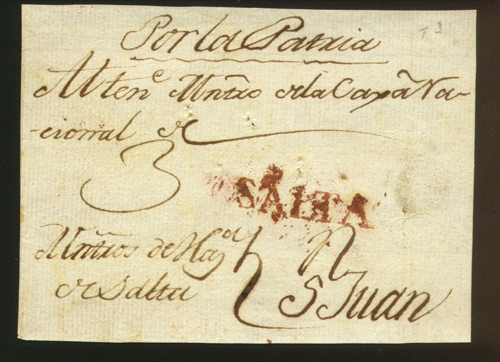 Por la Patria
Al tenᵉ Mntr̃o de la Caxã Na-
cional de
3
SALTA
Mntr̃os de Hazᵈᵃ
de Salta
S Juan